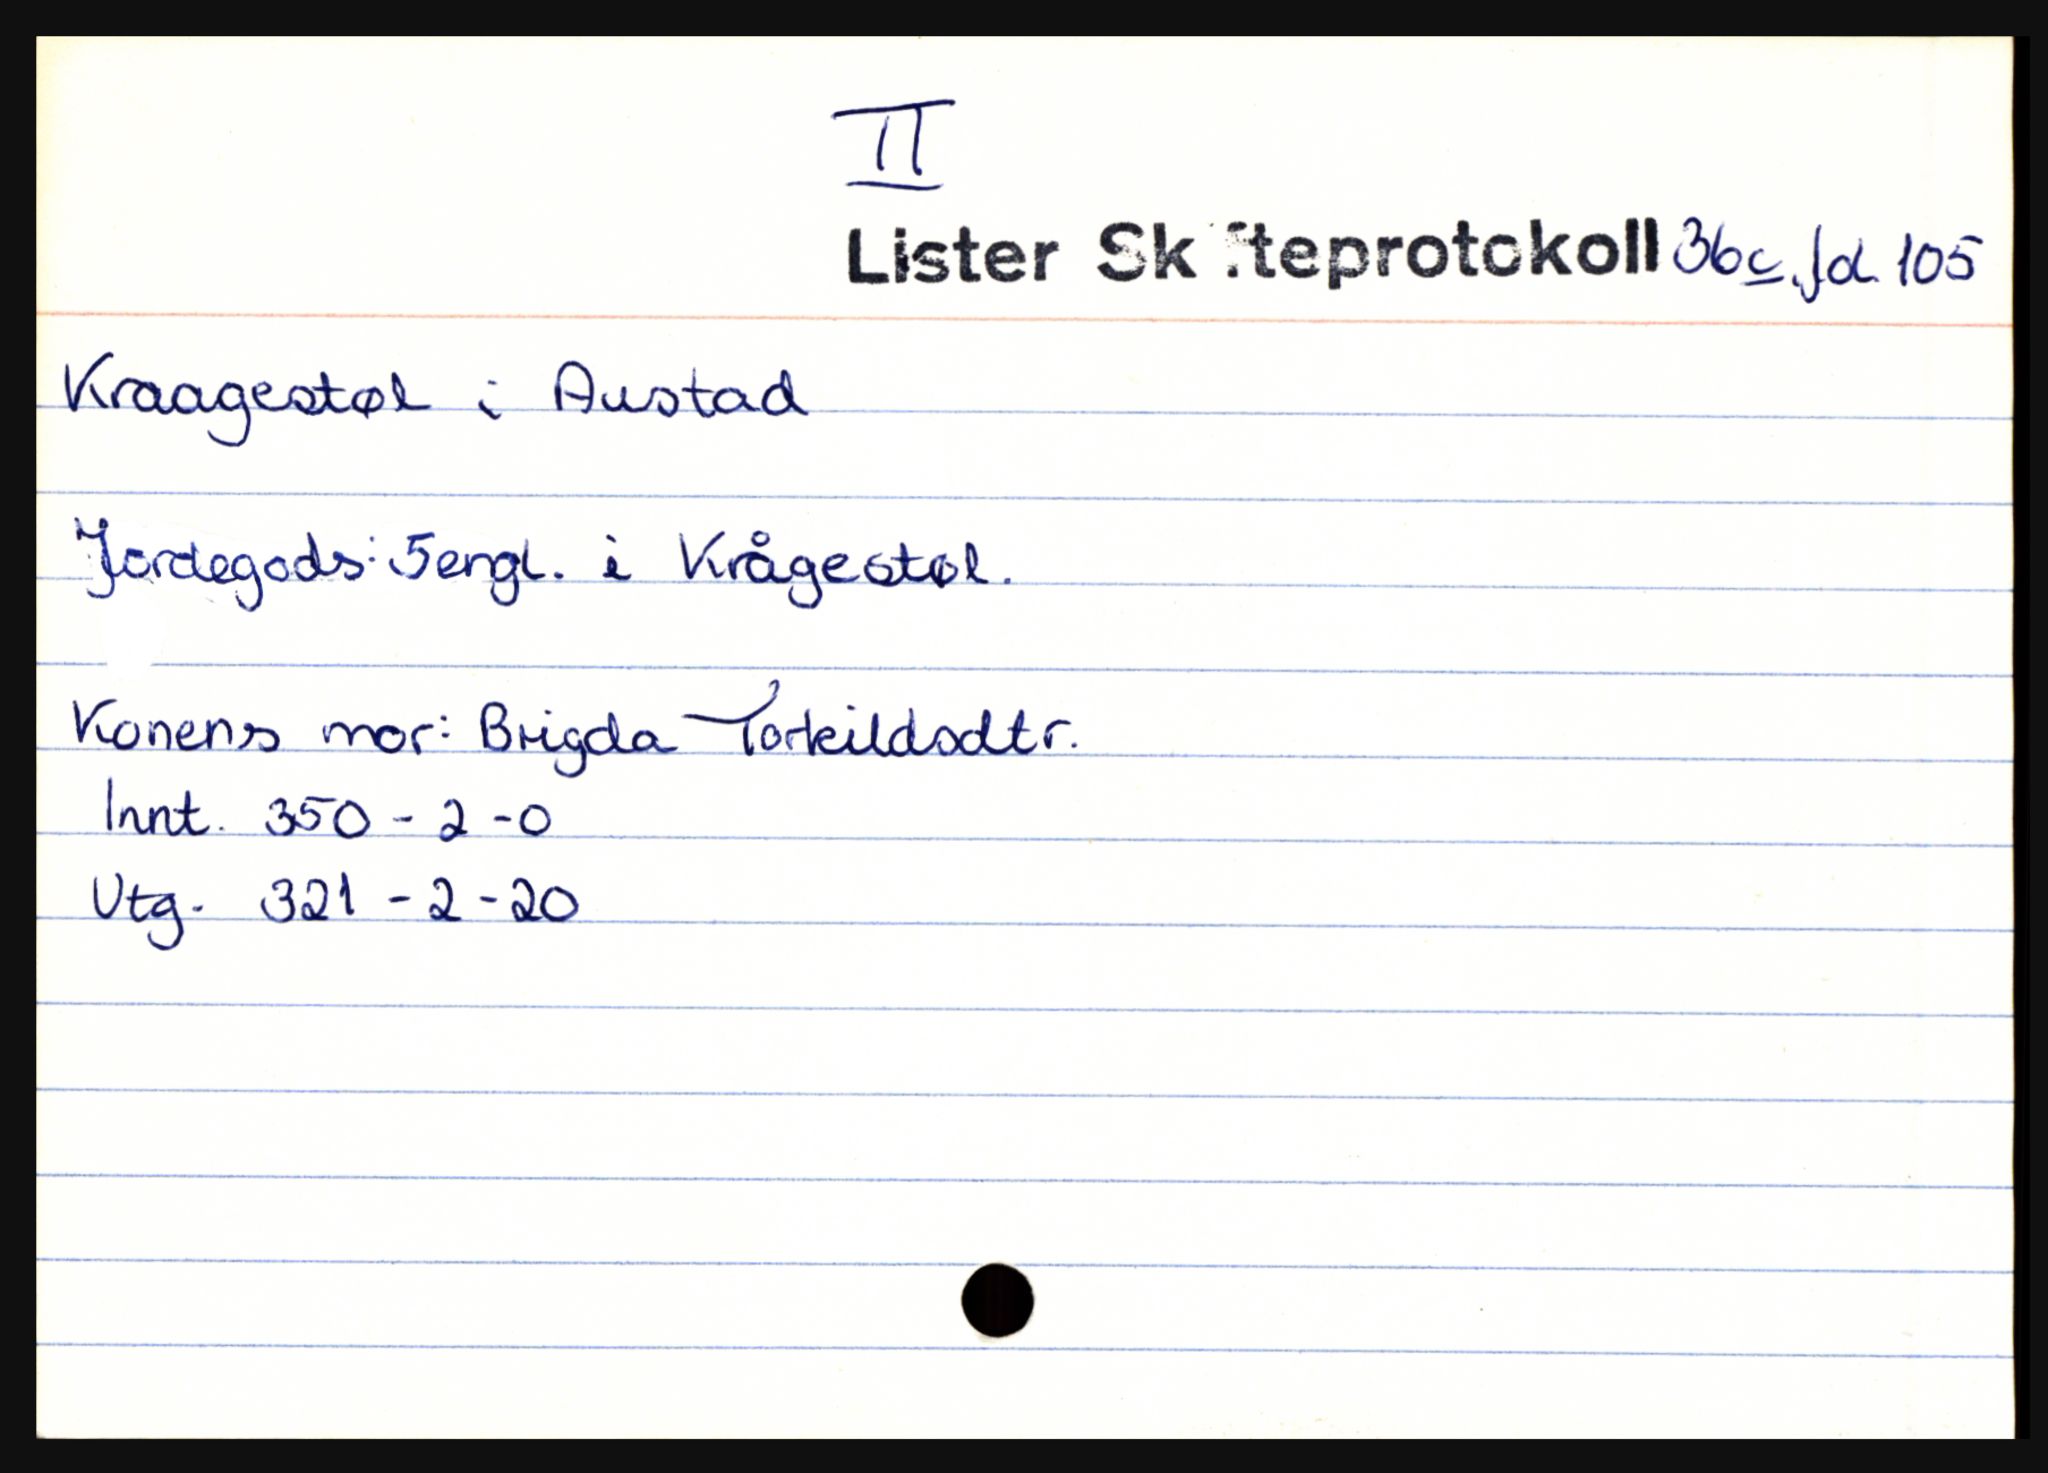 II
Lister Skifteprotokoll 36c. fol. 105
Kraagestøl i Austad
Jordegods: 5engl. i Krågestøl.
Konens mor: Brigda Torkildsdtr.
Innt. 350 - 2 - 0
Utg. 321 - 2 - 20